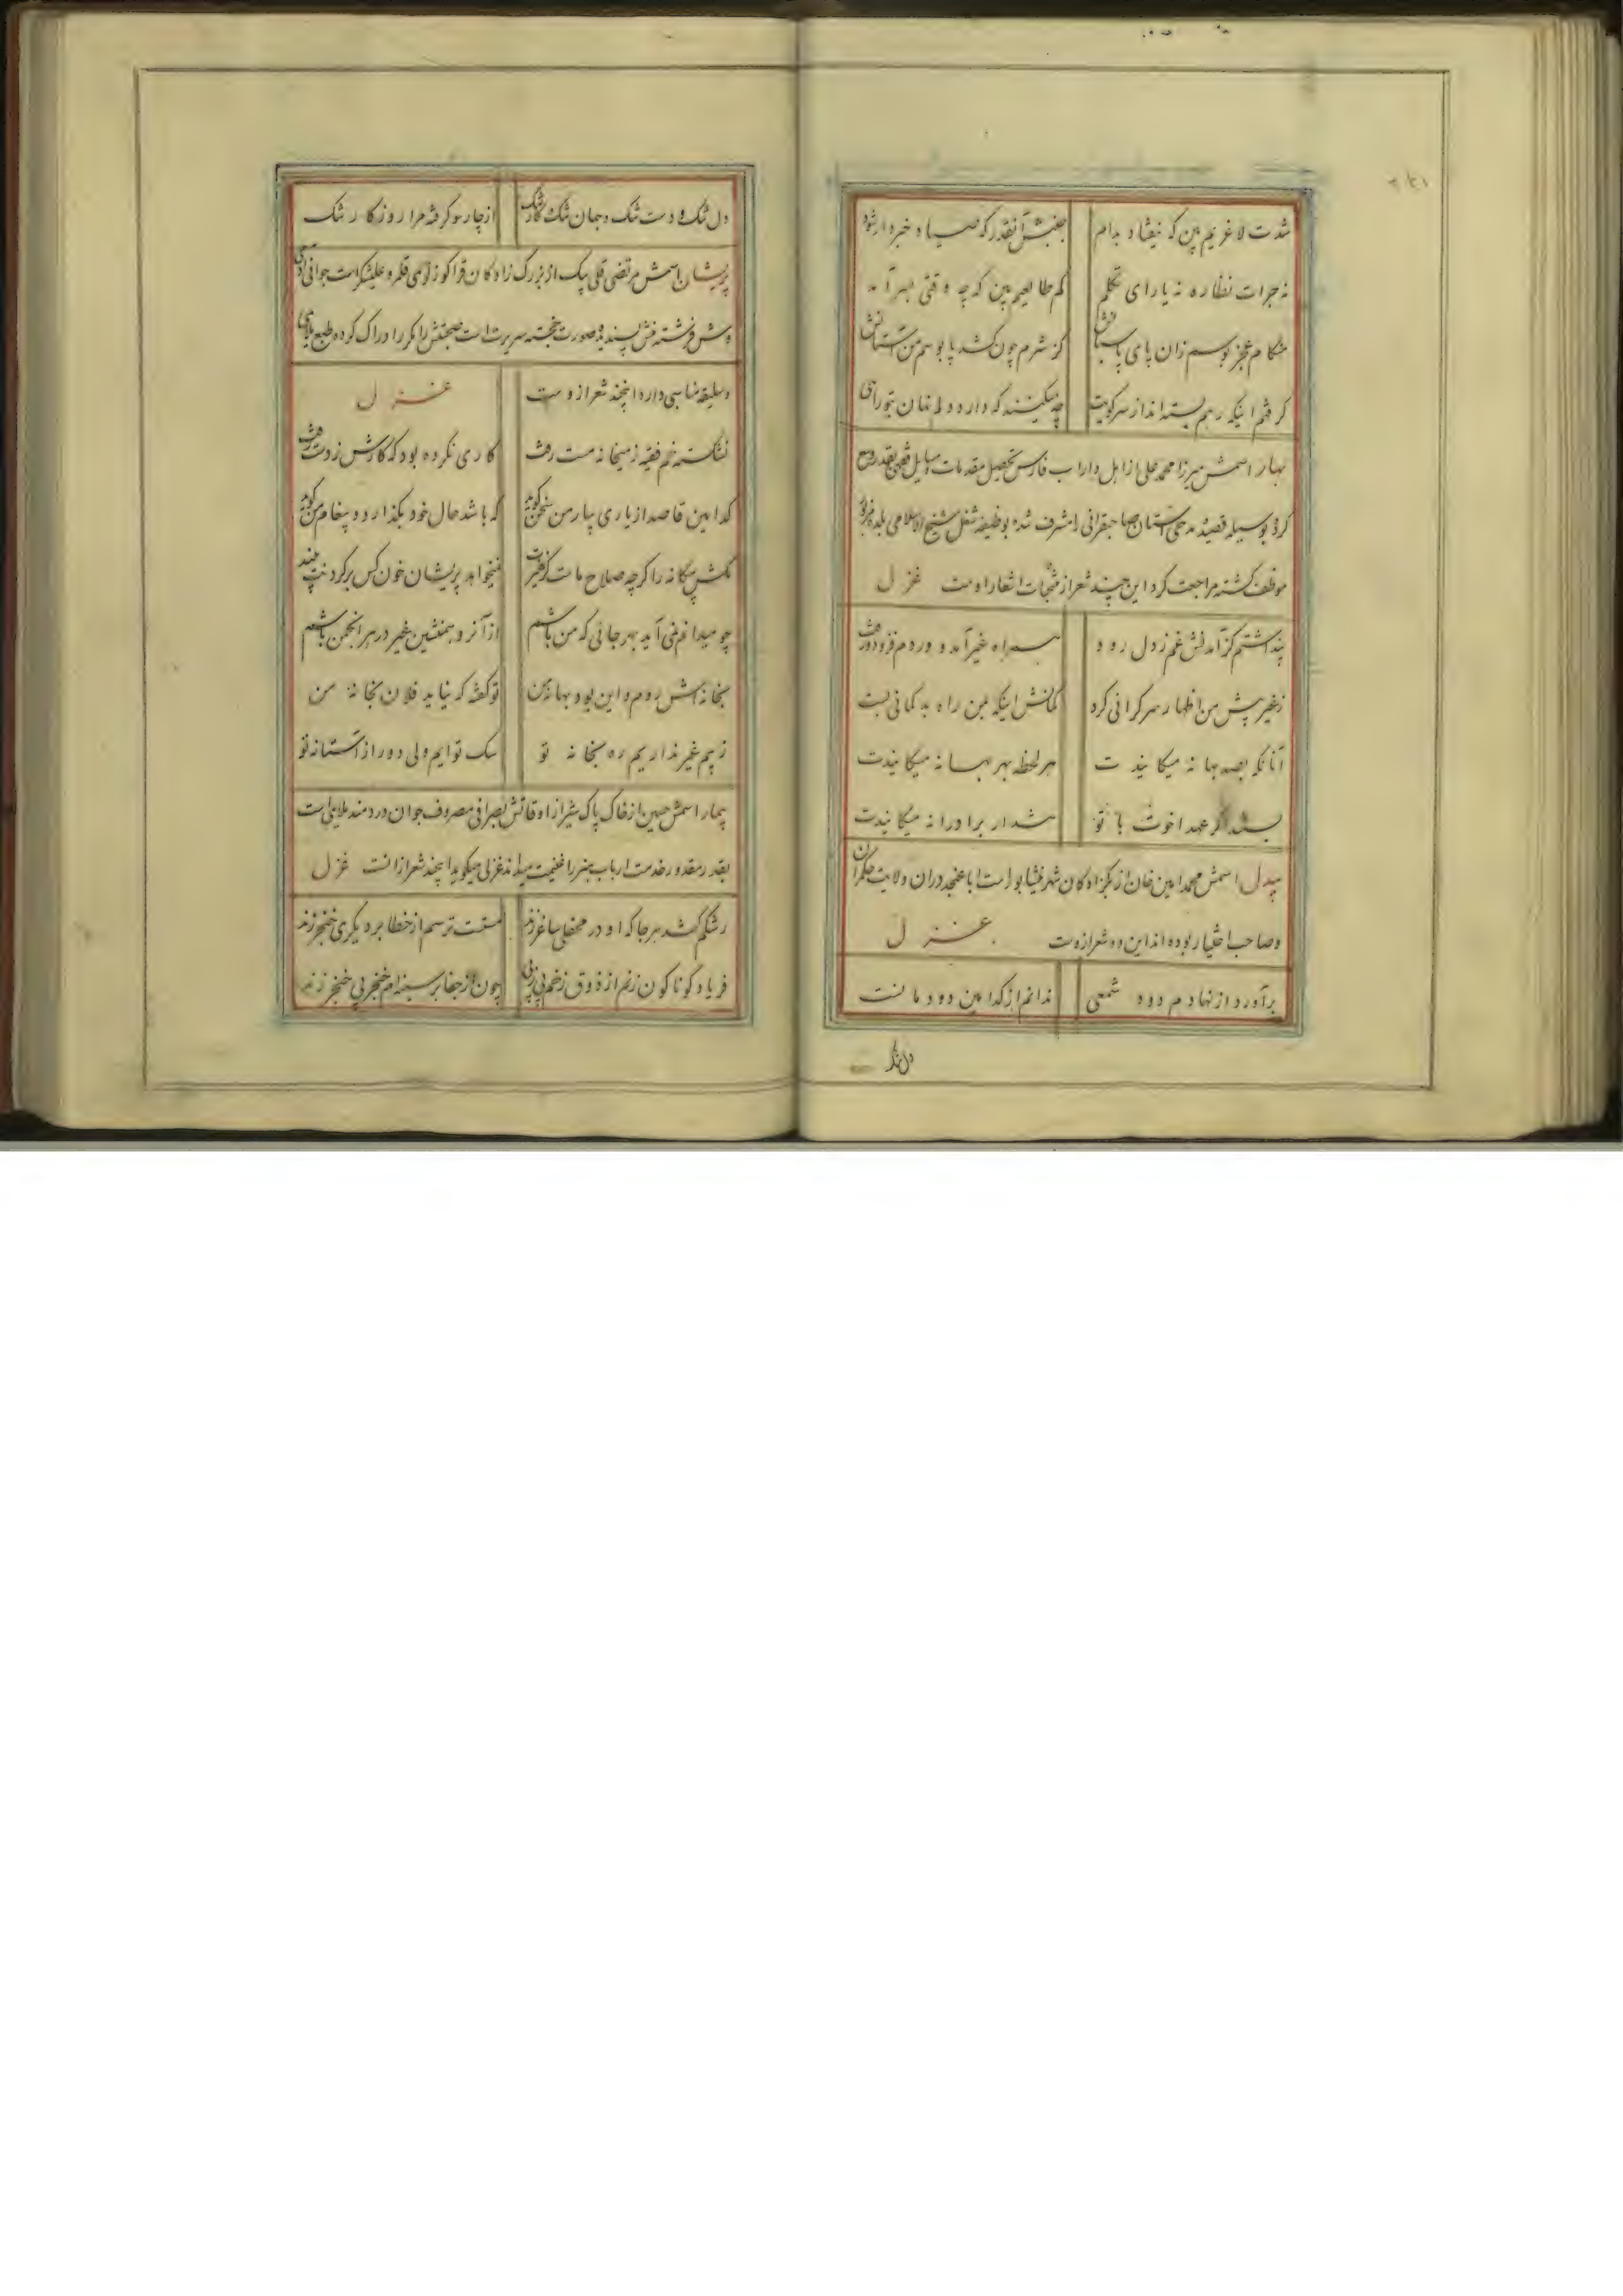 شدت لاغریم بین که نیفتاد بدام جنبش آنقدر که صیاد خبردار شود
نه جرات نظاره نه یارای تکلم کم طالعیم بین که چه وقتی بسر آمد
هنگام عجز بوسم زان پای پاسبانش کز شرم چون کشد پا بوسم من آستانش
گرفتم اینکه رهم بسته‌اند از سر کویت چه میکنند که دارد دلم نهان بتو راهی
بهار اسمش میرزا محمد علی از اهل داراب فارس تحصیل مقدمات و مسایل فقهی بقدر وسع
کرده بوسیله قصیده مدحی آستان صاحبقرانی را مشرف شده بوظیفه شغل شیخ الاسلامی بلده مزبور
موظف گشته مراجعت کرد این چند شعر از منتخبات اشعار اوست غزل
پنداشتم کز آمدنش غم ز دل رود همراه غیر آمد و دردم فزود و رفت
ز غیر پیش من اظهار سر گرانی کرد گمانش اینکه بمن راه بدگمانی بست
آنانکه بصد بهانه میگانیدت هر لحظه بهر بهانه میگانیدت
بستند اگر عهد اخوت با تو هشدار برادرانه میگانیدت
بیدل اسمش محمد امین خان از بکزادگان شهر نیشابور است اباعنجد دران ولایت حکمران
وصاحب اختیار بوده‌اند این دو شعر ازوست غزل
برآورد از نهادم دود شمعی ندانم از کدامین دودمانست
دل تنک
دل تنک و دست تنک و جهان تنک و کار تنک از چار سو گرفته مرا روزگار تنک
پریشان اسمش مرتضی قلی بیک از بزرگ زادگان قراگوزلوی قلمرو علیشکر است جوانی
وش فرشته منش پسندیده صورت خجسته سیرت است صحبتش را مکرر ادراک کرده طبع ملایمی
و سلیقه مناسبی دارد اینچند شعر ازوست غزل
نشکسته خم فقیه ز میخانه مست رفت کاری نکرده بود که کارش ز دست رفت
کدامین قاصد از یاری بیار من سخن گوید که باشد حال خود بگذارد و پیغام من گوید
مکش بیگانه را گرچه صلاح ما نمیخواهد پریشان خون کس بر گردنت بیند
چو میدانم نمی آید بهر جائی که من باشم از آنرو همنشین غیر در هر انجمن باشم
بخانه‌اش روم و این بود بهانه من تو گفته که نیاید فلان بخانه من
ز بیم غیر نداریم ره بخانه تو سک توایم ولی دور از آستانه تو
بیمار اسمش حسین از خاک پاک شیراز اوقاتش بصرافی مصروف جوان دردمند ملایمی است
بقدر مقدور خدمت ارباب هنر را غنیمت میداند غزلی میگوید اینچند شعر ازانست غزل
رشکم کشد هر جا که او در محفلی ساغر زند مستست ترسم از خطا بر دیگری خنجر زند
فریاد گوناگون زنم از ذوق زخم پی ز پی چون از جفا بر سینه‌ام خنجر پی خنجر زند